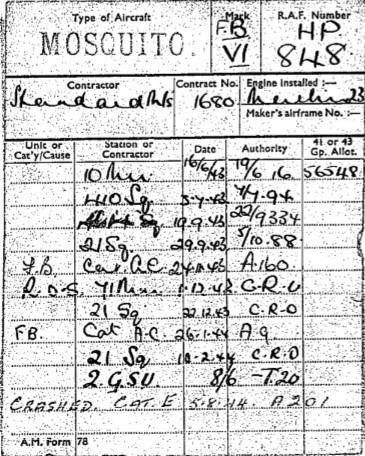 Type of Aircraft
MOSQUITO.
Mark
F.B
VI
R.A.F. Number
HP
848.
Contractor
Contract No.
1680
Engine installed :—
23
Maker's airframe No. :—
Unit or
Cat'y/Cause
Station or
Contractor
Date
Authority
41 or 43
Gp. Allot.
10 Mu 16/6/43 19/6 16 56548
140 Sq 9.94
Sq 19.9.43 22/9334
21 Sq 29.9.43 5/10.88
F.B. Cat A.C. 24.10.43 A160
R.O.S. 71 Mu 1.12.43 C.R.O
21 Sq 22.12.43 C.R.O
FB. Cat A.C. 26.1.44 A9
21 Sq 10.2.44 C.R.O
2 G.S.U. 8/6 -T.20
CRASHED. CAT. E 5.8.44. A201
A.M. Form 78